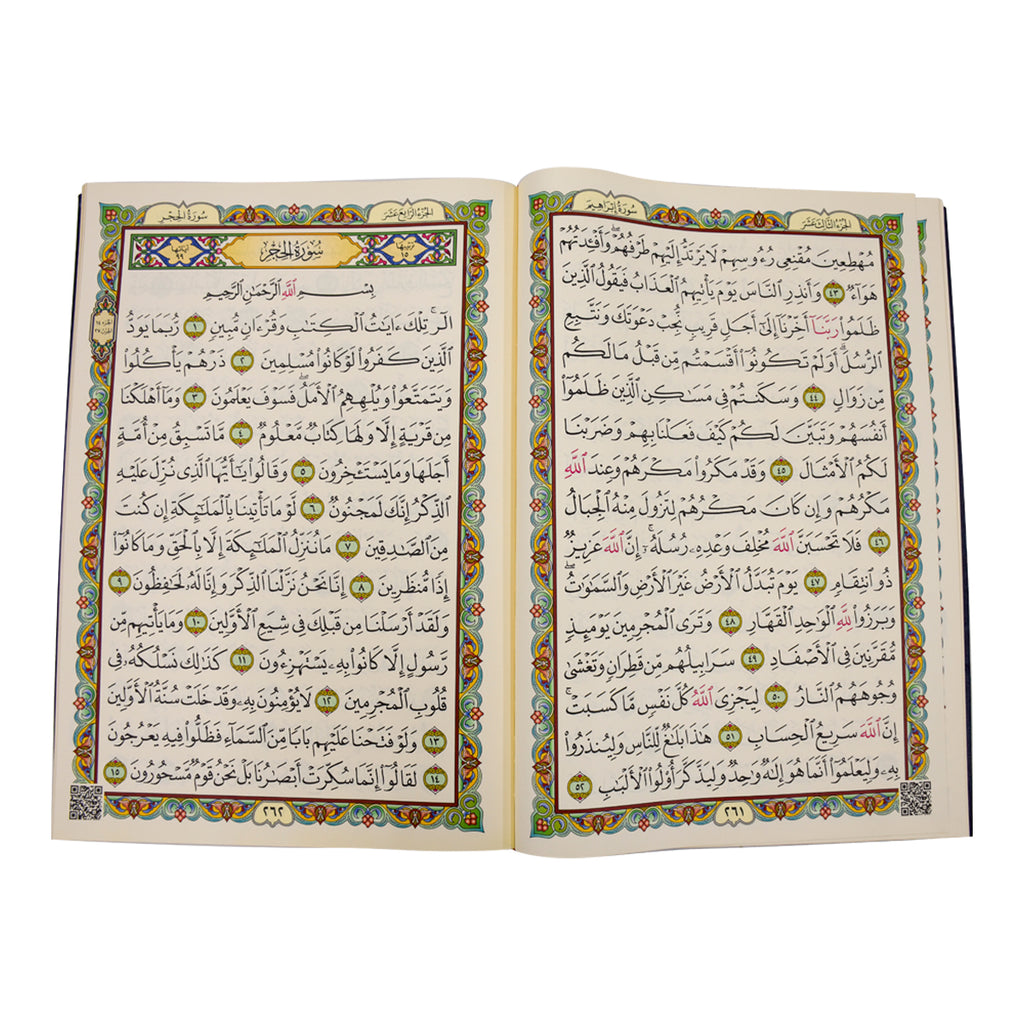 سُورَةُ إِبْرَاهِيمَ
الجُزْءُ الثَّالِثَ عَشَرَ
مُهْطِعِينَ مُقْنِعِى رُءُوسِهِمْ لَا يَرْتَدُّ إِلَيْهِمْ طَرْفُهُمْ ۖ وَأَفْـِٔدَتُهُمْ
هَوَآءٌ ٤٣ وَأَنذِرِ ٱلنَّاسَ يَوْمَ يَأْتِيهِمُ ٱلْعَذَابُ فَيَقُولُ ٱلَّذِينَ
ظَلَمُوا۟ رَبَّنَآ أَخِّرْنَآ إِلَىٰٓ أَجَلٍ قَرِيبٍ نُّجِبْ دَعْوَتَكَ وَنَتَّبِعِ
ٱلرُّسُلَ ۗ أَوَلَمْ تَكُونُوٓا۟ أَقْسَمْتُم مِّن قَبْلُ مَا لَكُم
مِّن زَوَالٍ ٤٤ وَسَكَنتُمْ فِى مَسَـٰكِنِ ٱلَّذِينَ ظَلَمُوٓا۟
أَنفُسَهُمْ وَتَبَيَّنَ لَكُمْ كَيْفَ فَعَلْنَا بِهِمْ وَضَرَبْنَا
لَكُمُ ٱلْأَمْثَالَ ٤٥ وَقَدْ مَكَرُوا۟ مَكْرَهُمْ وَعِندَ ٱللَّهِ
مَكْرُهُمْ وَإِن كَانَ مَكْرُهُمْ لِتَزُولَ مِنْهُ ٱلْجِبَالُ
٤٦ فَلَا تَحْسَبَنَّ ٱللَّهَ مُخْلِفَ وَعْدِهِۦ رُسُلَهُۥٓ ۗ إِنَّ ٱللَّهَ عَزِيزٌ
ذُو ٱنتِقَامٍ ٤٧ يَوْمَ تُبَدَّلُ ٱلْأَرْضُ غَيْرَ ٱلْأَرْضِ وَٱلسَّمَـٰوَٰتُ ۖ
وَبَرَزُوا۟ لِلَّهِ ٱلْوَٰحِدِ ٱلْقَهَّارِ ٤٨ وَتَرَى ٱلْمُجْرِمِينَ يَوْمَئِذٍ
مُّقَرَّنِينَ فِى ٱلْأَصْفَادِ ٤٩ سَرَابِيلُهُم مِّن قَطِرَانٍ وَتَغْشَىٰ
وُجُوهَهُمُ ٱلنَّارُ ٥٠ لِيَجْزِىَ ٱللَّهُ كُلَّ نَفْسٍ مَّا كَسَبَتْ ۚ
إِنَّ ٱللَّهَ سَرِيعُ ٱلْحِسَابِ ٥١ هَـٰذَا بَلَـٰغٌ لِّلنَّاسِ وَلِيُنذَرُوا۟
بِهِۦ وَلِيَعْلَمُوٓا۟ أَنَّمَا هُوَ إِلَـٰهٌ وَٰحِدٌ وَلِيَذَّكَّرَ أُو۟لُوا۟ ٱلْأَلْبَـٰبِ ٥٢
٢٦١
الجُزْءُ الرَّابِعَ عَشَرَ
سُورَةُ الحِجْرِ
ترتيبها ١٥
سُورَةُ الحِجْرِ
آياتها ٩٩
بِسْمِ ٱللَّهِ ٱلرَّحْمَـٰنِ ٱلرَّحِيمِ
الٓر ۚ تِلْكَ ءَايَـٰتُ ٱلْكِتَـٰبِ وَقُرْءَانٍ مُّبِينٍ ١ رُّبَمَا يَوَدُّ
ٱلَّذِينَ كَفَرُوا۟ لَوْ كَانُوا۟ مُسْلِمِينَ ٢ ذَرْهُمْ يَأْكُلُوا۟
وَيَتَمَتَّعُوا۟ وَيُلْهِهِمُ ٱلْأَمَلُ ۖ فَسَوْفَ يَعْلَمُونَ ٣ وَمَآ أَهْلَكْنَا
مِن قَرْيَةٍ إِلَّا وَلَهَا كِتَابٌ مَّعْلُومٌ ٤ مَّا تَسْبِقُ مِنْ أُمَّةٍ
أَجَلَهَا وَمَا يَسْتَـْٔخِرُونَ ٥ وَقَالُوا۟ يَـٰٓأَيُّهَا ٱلَّذِى نُزِّلَ عَلَيْهِ
ٱلذِّكْرُ إِنَّكَ لَمَجْنُونٌ ٦ لَّوْ مَا تَأْتِينَا بِٱلْمَلَـٰٓئِكَةِ إِن كُنتَ
مِنَ ٱلصَّـٰدِقِينَ ٧ مَا نُنَزِّلُ ٱلْمَلَـٰٓئِكَةَ إِلَّا بِٱلْحَقِّ وَمَا كَانُوٓا۟
إِذًا مُّنظَرِينَ ٨ إِنَّا نَحْنُ نَزَّلْنَا ٱلذِّكْرَ وَإِنَّا لَهُۥ لَحَـٰفِظُونَ ٩
وَلَقَدْ أَرْسَلْنَا مِن قَبْلِكَ فِى شِيَعِ ٱلْأَوَّلِينَ ١٠ وَمَا يَأْتِيهِم مِّن
رَّسُولٍ إِلَّا كَانُوا۟ بِهِۦ يَسْتَهْزِءُونَ ١١ كَذَٰلِكَ نَسْلُكُهُۥ فِى
قُلُوبِ ٱلْمُجْرِمِينَ ١٢ لَا يُؤْمِنُونَ بِهِۦ ۖ وَقَدْ خَلَتْ سُنَّةُ ٱلْأَوَّلِينَ
١٣ وَلَوْ فَتَحْنَا عَلَيْهِم بَابًا مِّنَ ٱلسَّمَآءِ فَظَلُّوا۟ فِيهِ يَعْرُجُونَ
١٤ لَقَالُوٓا۟ إِنَّمَا سُكِّرَتْ أَبْصَـٰرُنَا بَلْ نَحْنُ قَوْمٌ مَّسْحُورُونَ ١٥
٢٦٢